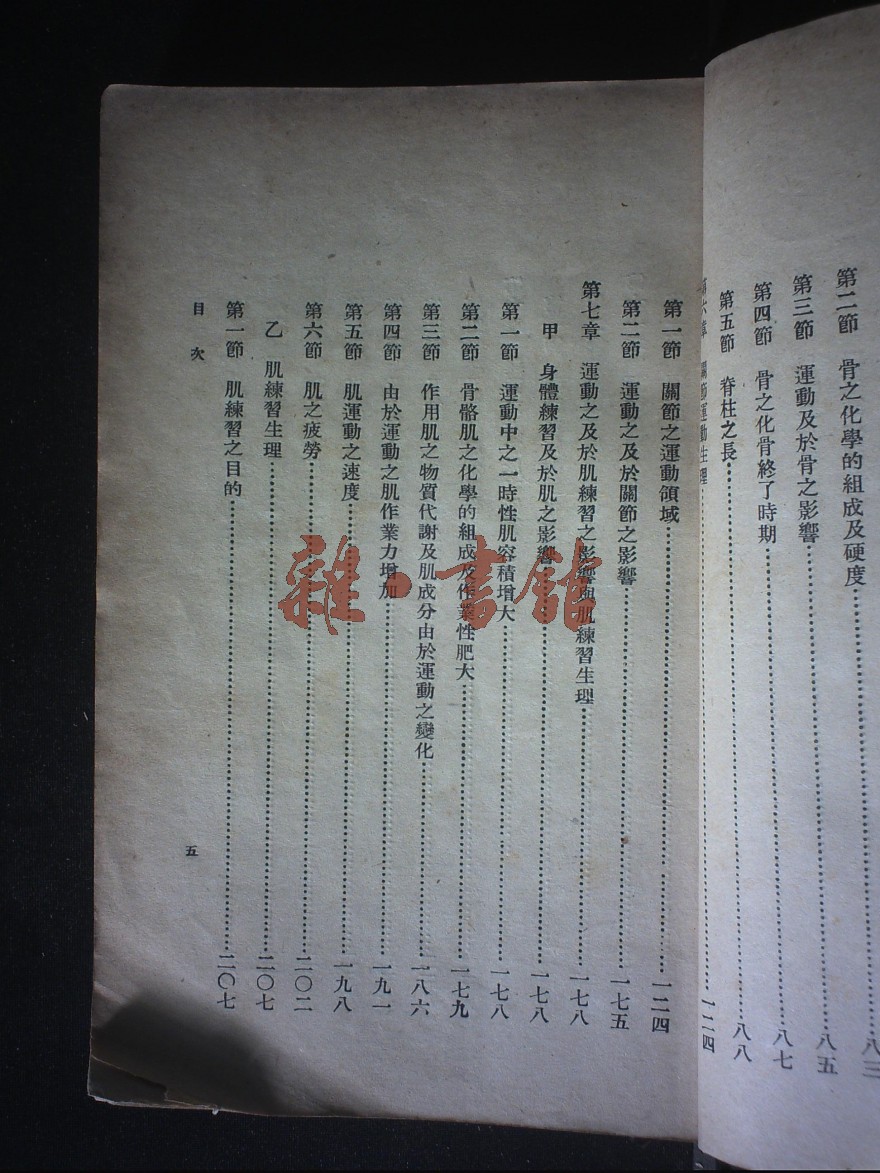 第二節　骨之化學的組成及硬度…………八三
第三節　運動及於骨之影響…………八五
第四節　骨之化骨終了時期…………八七
第五節　脊柱之長…………八八
第六章　關節運動生理…………一二四
第一節　關節之運動領域…………一二四
第二節　運動之及於關節之影響…………一七五
第七章　運動之及於肌練習之影響與肌練習生理…………一七八
甲　身體練習及於肌之影響…………一七八
第一節　運動中之一時性肌容積增大…………一七八
第二節　骨骼肌之化學的組成及作業性肥大…………一七九
第三節　作用肌之物質代謝及肌成分由於運動之變化…………一八六
第四節　由於運動之肌作業力增加…………一九一
第五節　肌運動之速度…………一九八
第六節　肌之疲勞…………二〇二
乙　肌練習生理…………二〇七
第一節　肌練習之目的…………二〇七
目次
五
雜·書館